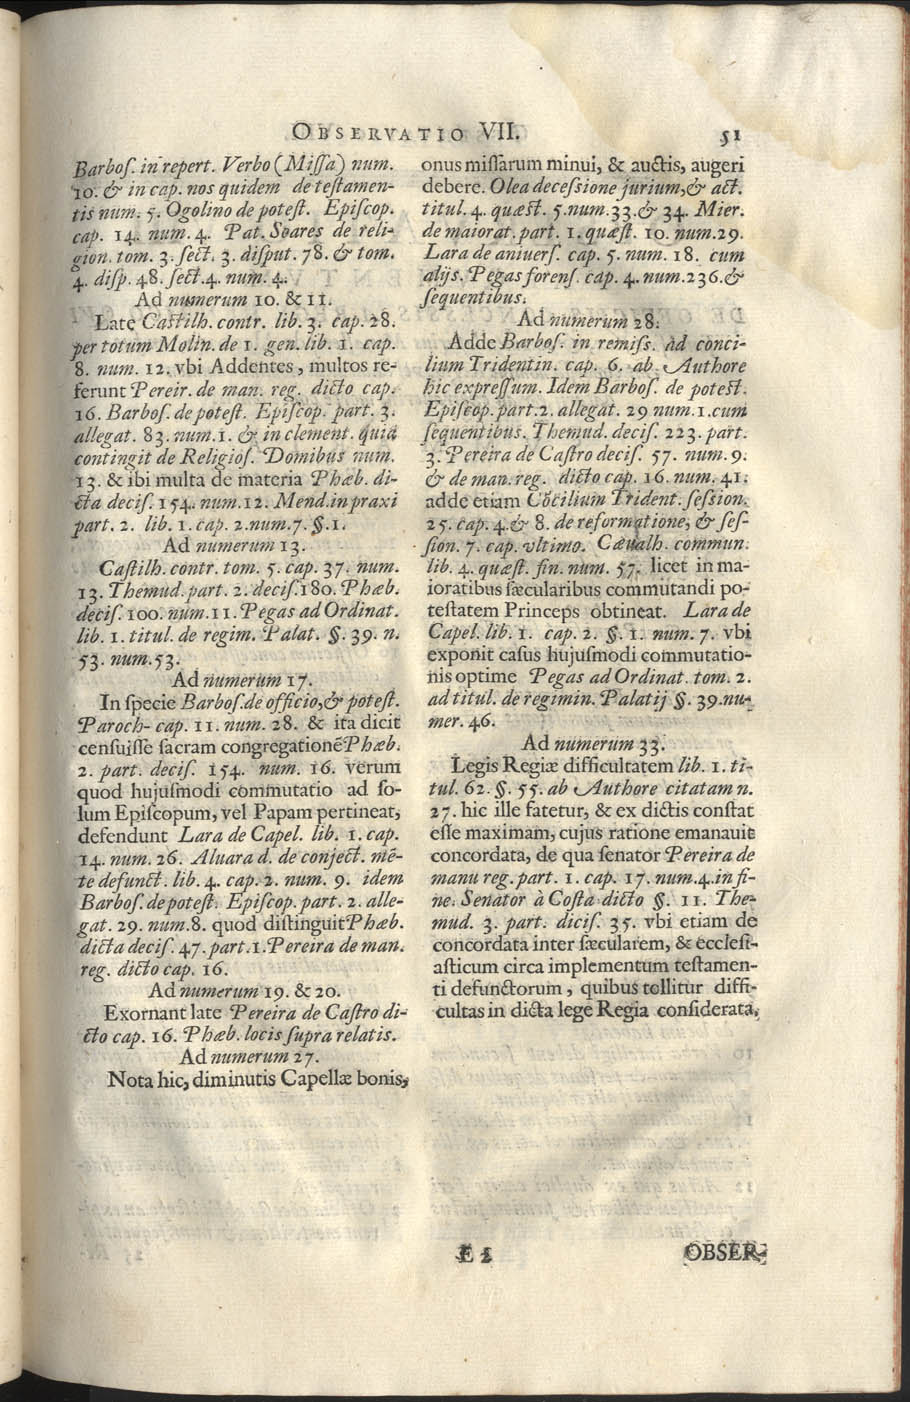 OBSERVATIO VII. 51
Barboſ. in repert. Verbo (Miſſa) num.
10. & in cap. nos quidem de teſtamen-
tis num. 5. Ogolino de poteſt. Epiſcop.
cap. 14. num. 4. Pat. Soares de reli-
gion. tom. 3. ſect. 3. diſput. 78. & tom.
4. diſp. 48. ſect. 4. num. 4.
Ad numerum 10. & 11.
Late Caſtilh. contr. lib. 3. cap. 28.
per totum Molin. de 1. gen. lib. 1. cap.
8. num. 12. vbi Addentes, multos re-
ferunt Pereir. de man. reg. dicto cap.
16. Barboſ. de poteſt. Epiſcop. part. 3.
allegat. 83. num. 1. & in clement. quia
contingit de Religioſ. Domibus num.
13. & ibi multa de materia Phæb. di-
cta deciſ. 154. num. 12. Mend. in praxi
part. 2. lib. 1. cap. 2. num. 7. §. 1.
Ad numerum 13.
Caſtilh. contr. tom. 5. cap. 37. num.
13. Themud. part. 2. deciſ. 180. Phæb.
deciſ. 100. num. 11. Pegas ad Ordinat.
lib. 1. titul. de regim. Palat. §. 39. n.
53. num. 53.
Ad numerum 17.
In ſpecie Barboſ. de officio, & poteſt.
Paroch- cap. 11. num. 28. & ita dicit
cenſuiſſe ſacram congregationẽ Phæb.
2. part. deciſ. 154. num. 16. verum
quod hujuſmodi commutatio ad ſo-
lum Epiſcopum, vel Papam pertineat,
defendunt Lara de Capel. lib. 1. cap.
14. num. 26. Aluara d. de conject. mẽ-
te defunct. lib. 4. cap. 2. num. 9. idem
Barboſ. de poteſt. Epiſcop. part. 2. alle-
gat. 29. num. 8. quod diſtinguit Phæb.
dicta deciſ. 47. part. 1. Pereira de man.
reg. dicto cap. 16.
Ad numerum 19. & 20.
Exornant late Pereira de Caſtro di-
cto cap. 16. Phæb. locis ſupra relatis.
Ad numerum 27.
Nota hic, diminutis Capellæ bonis,
onus miſſarum minui, & auctis, augeri
debere. Olea deceſsione jurium, & act.
titul. 4. quæſt. 5. num. 33. & 34. Mier.
de maiorat. part. 1. quæſt. 10. num. 29.
Lara de aniuerſ. cap. 5. num. 18. cum
alijs. Pegas forenſ. cap. 4. num. 236. &
ſequentibus.
Ad numerum 28.
Adde Barboſ. in remiſs. ad conci-
lium Tridentin. cap. 6. ab Authore
hic expreſſum. Idem Barboſ. de poteſt.
Epiſcop. part. 2. allegat. 29 num. 1. cum
ſequentibus. Themud. deciſ. 223. part.
3. Pereira de Caſtro deciſ. 57. num. 9.
& de man. reg. dicto cap. 16. num. 41.
adde etiam Cõcilium Trident. ſeſsion.
25. cap. 4. & 8. de reformatione, & ſeſ-
ſion. 7. cap. vltimo. Cæualh. commun.
lib. 4. quæſt. fin. num. 57. licet in ma-
ioratibus ſæcularibus commutandi po-
teſtatem Princeps obtineat. Lara de
Capel. lib. 1. cap. 2. §. 1. num. 7. vbi
exponit caſus hujuſmodi commutatio-
nis optime Pegas ad Ordinat. tom. 2.
ad titul. de regimin. Palatij §. 39. nu-
mer. 46.
Ad numerum 33.
Legis Regiæ difficultatem lib. 1. ti-
tul. 62. §. 55. ab Authore citatam n.
27. hic ille fatetur, & ex dictis conſtat
eſſe maximam, cujus ratione emanauit
concordata, de qua ſenator Pereira de
manu reg. part. 1. cap. 17. num. 4. in fi-
ne. Senator à Coſta dicto §. 11. The-
mud. 3. part. diciſ. 35. vbi etiam de
concordata inter ſæcularem, & eccleſi-
aſticum circa implementum teſtamen-
ti defunctorum, quibus tollitur diffi-
cultas in dicta lege Regia conſiderata,
E 2 OBSER-